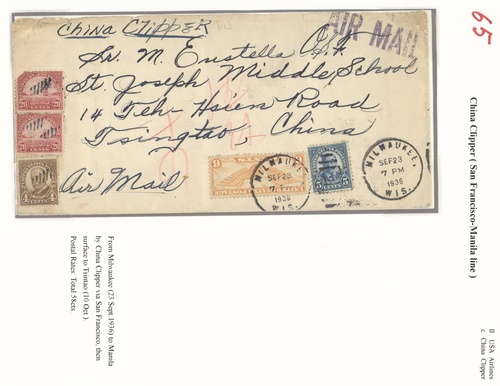 65
China Clipper ( San Francisco-Manila line )
II USA Airlines
c. China Clipper
China CLIPPER
AIR MAIL
Sr. M. Eustella O.S.F.
St. Joseph Middle School
14 Teh-Hsien Road
Tsingtao, China
Air Mail
MILWAUKEE,
SEP 23
7 PM
1936
WIS.
MILWAUKEE,
SEP 23
7
1936
WIS.
20 CENTS 20
20 CENTS 20
4 4
5 5
From Milwaukee (23 Sept 1936) to Manila
by China Clipper via San Francisco, then
surface to Tsintao (10 Oct.)
Postal Rates: Total 58cts.